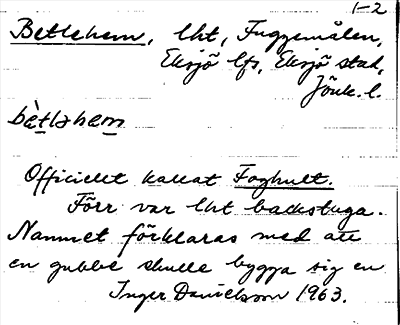 1-2
Betlehem, lht, Fuggemålen,
Eksjö lfs, Eksjö stad,
Jönk. l.
bètləhem
Officiellt kallat Foghult.
Förr var lht backstuga.
Namnet förklaras med att
en gubbe skulle bygga sig en
Inger Danielsson 1963.